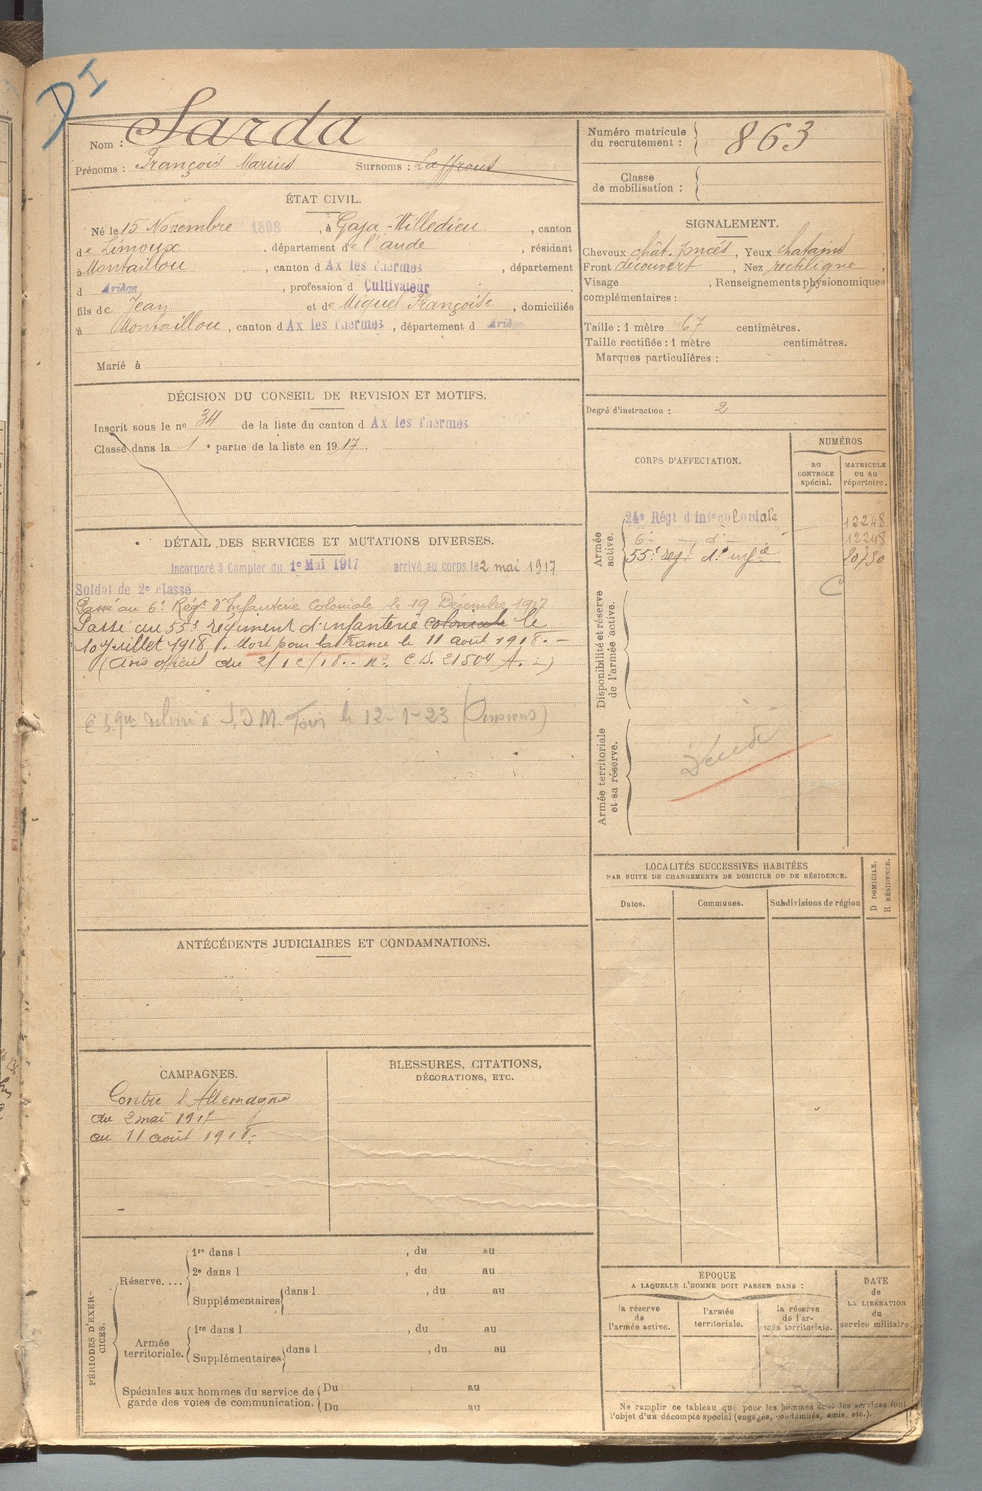 DI
Nom : Sarda
Prénoms : François Marius Surnoms :
Numéro matricule du recrutement : 863
Classe de mobilisation :
ÉTAT CIVIL.
Né le 15 Novembre 1898, à Gaja-Villedieu, canton
de Limoux, département de l'aude, résidant
à Montaillou, canton d Ax les Thermes, département
d Ariège, profession d Cultivateur
fils de Jean et de Miquel Françoise, domiciliés
à Montaillou, canton d Ax les Thermes, département d Ariège
Marié à
SIGNALEMENT.
Cheveux chât. foncés, Yeux chatains
Front découvert, Nez rectiligne,
Visage , Renseignements physionomiques
complémentaires :
Taille : 1 mètre 67 centimètres.
Taille rectifiée : 1 mètre centimètres.
Marques particulières :
Degré d'instruction : 2
DÉCISION DU CONSEIL DE REVISION ET MOTIFS.
Inscrit sous le n° 34 de la liste du canton d Ax les Thermes
Classé dans la 1e partie de la liste en 1917.
DÉTAIL DES SERVICES ET MUTATIONS DIVERSES.
Incorporé à Compter du 1er Mai 1917 arrivé au corps le 2 mai 1917
Soldat de 2e classe
Passé au 6e Régt d'Infanterie Coloniale le 19 Décembre 1917
Passé au 55e régiment d'infanterie coloniale le
10 juillet 1918. Mort pour la France le 11 août 1918. -
(avis officiel du 2/12/18. n° C.D. 21504 A. -)
le 12-1-23 (Pensions)
CORPS D'AFFECTATION.
NUMÉROS
AU CONTRÔLE spécial.
MATRICULE OU AU répertoire.
Armée active.
24e Régt d'infie coloniale 12248
6e - d° - 12248
55e regt d'infie 20730
C
Disponibilité et réserve de l'armée active.
Armée territoriale et sa réserve.
Décédé
LOCALITÉS SUCCESSIVES HABITÉES
PAR SUITE DE CHANGEMENTS DE DOMICILE OU DE RÉSIDENCE.
D DOMICILE.
R RÉSIDENCE.
Dates. Communes. Subdivisions de région
ANTÉCÉDENTS JUDICIAIRES ET CONDAMNATIONS.
CAMPAGNES.
Contre l'Allemagne
du 2 mai 1917
au 11 août 1918.
BLESSURES, CITATIONS,
DÉCORATIONS, ETC.
PÉRIODES D'EXERCICES.
Réserve....
1re dans l , du au
2e dans l , du au
Supplémentaires dans l , du au
au
Armée territoriale.
1re dans l , du au
Supplémentaires dans l , du au
Spéciales aux hommes du service de garde des voies de communication.
Du au
Du au
ÉPOQUE
A LAQUELLE L'HOMME DOIT PASSER DANS :
la réserve de l'armée active.
l'armée territoriale.
la réserve de l'armée territoriale.
DATE de LA LIBÉRATION du service militaire
Ne remplir ce tableau que pour les hommes dont les services font
l'objet d'un décompte spécial (engagés, condamnés, omis, etc.).